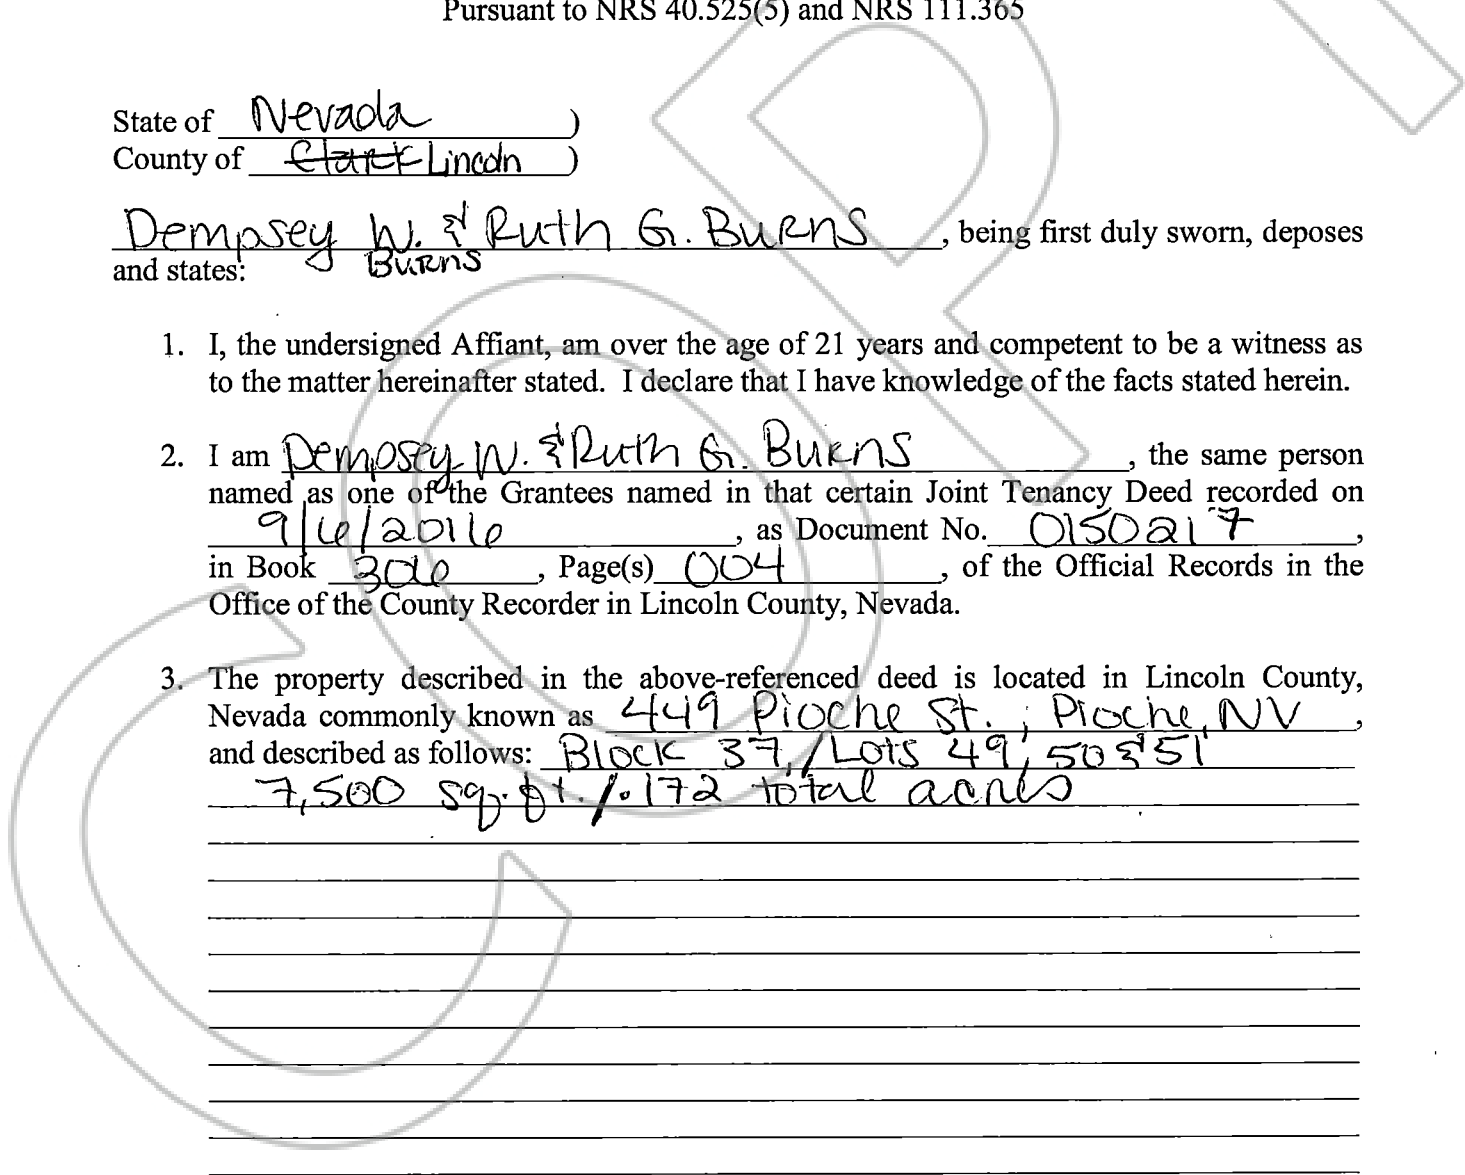 Pursuant to NRS 40.525(5) and NRS 111.365
State of Nevada )
County of Clark Lincoln )
Dempsey W. & Ruth G. Burns, being first duly sworn, deposes
Burns
and states:
1. I, the undersigned Affiant, am over the age of 21 years and competent to be a witness as
to the matter hereinafter stated. I declare that I have knowledge of the facts stated herein.
2. I am Dempsey W. & Ruth G. Burns, the same person
named as one of the Grantees named in that certain Joint Tenancy Deed recorded on
9/6/2016, as Document No. 0150217,
in Book 306, Page(s) 004, of the Official Records in the
Office of the County Recorder in Lincoln County, Nevada.
3. The property described in the above-referenced deed is located in Lincoln County,
Nevada commonly known as 449 Pioche St. ; Pioche, NV,
and described as follows: Block 37, / Lots 49, 50 & 51
7,500 sq. ft. / .172 total acres
COPY